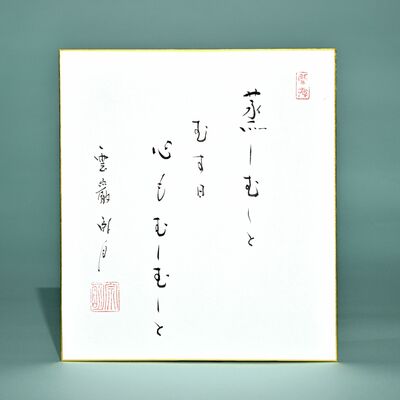 蒸しむしと
むす日
心もむしむしと
雲巌